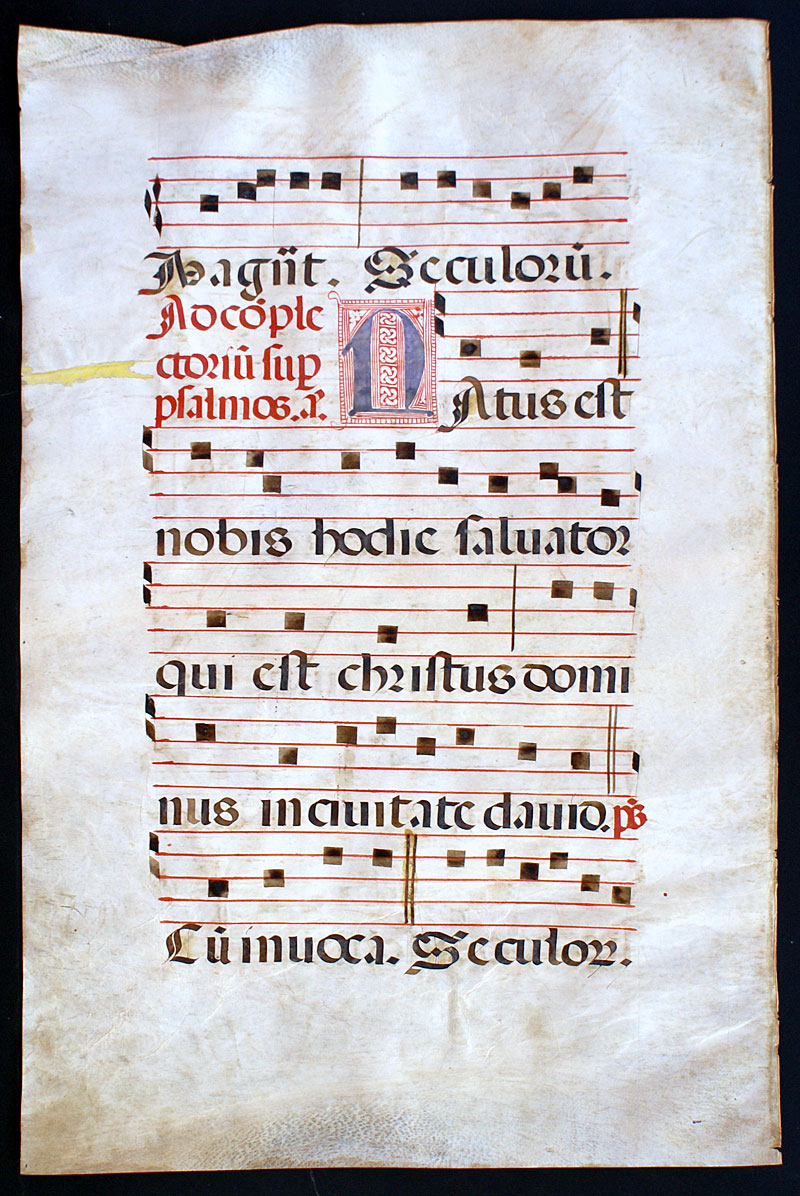 Magn̄t. Seculorū.
Ad cōple
ctoriū sup
psalmos. a.
NAtus est
nobis hodie saluator
qui est christus domi
nus in ciuitate dauid. ps
Cū inuoca. Seculoꝝ.